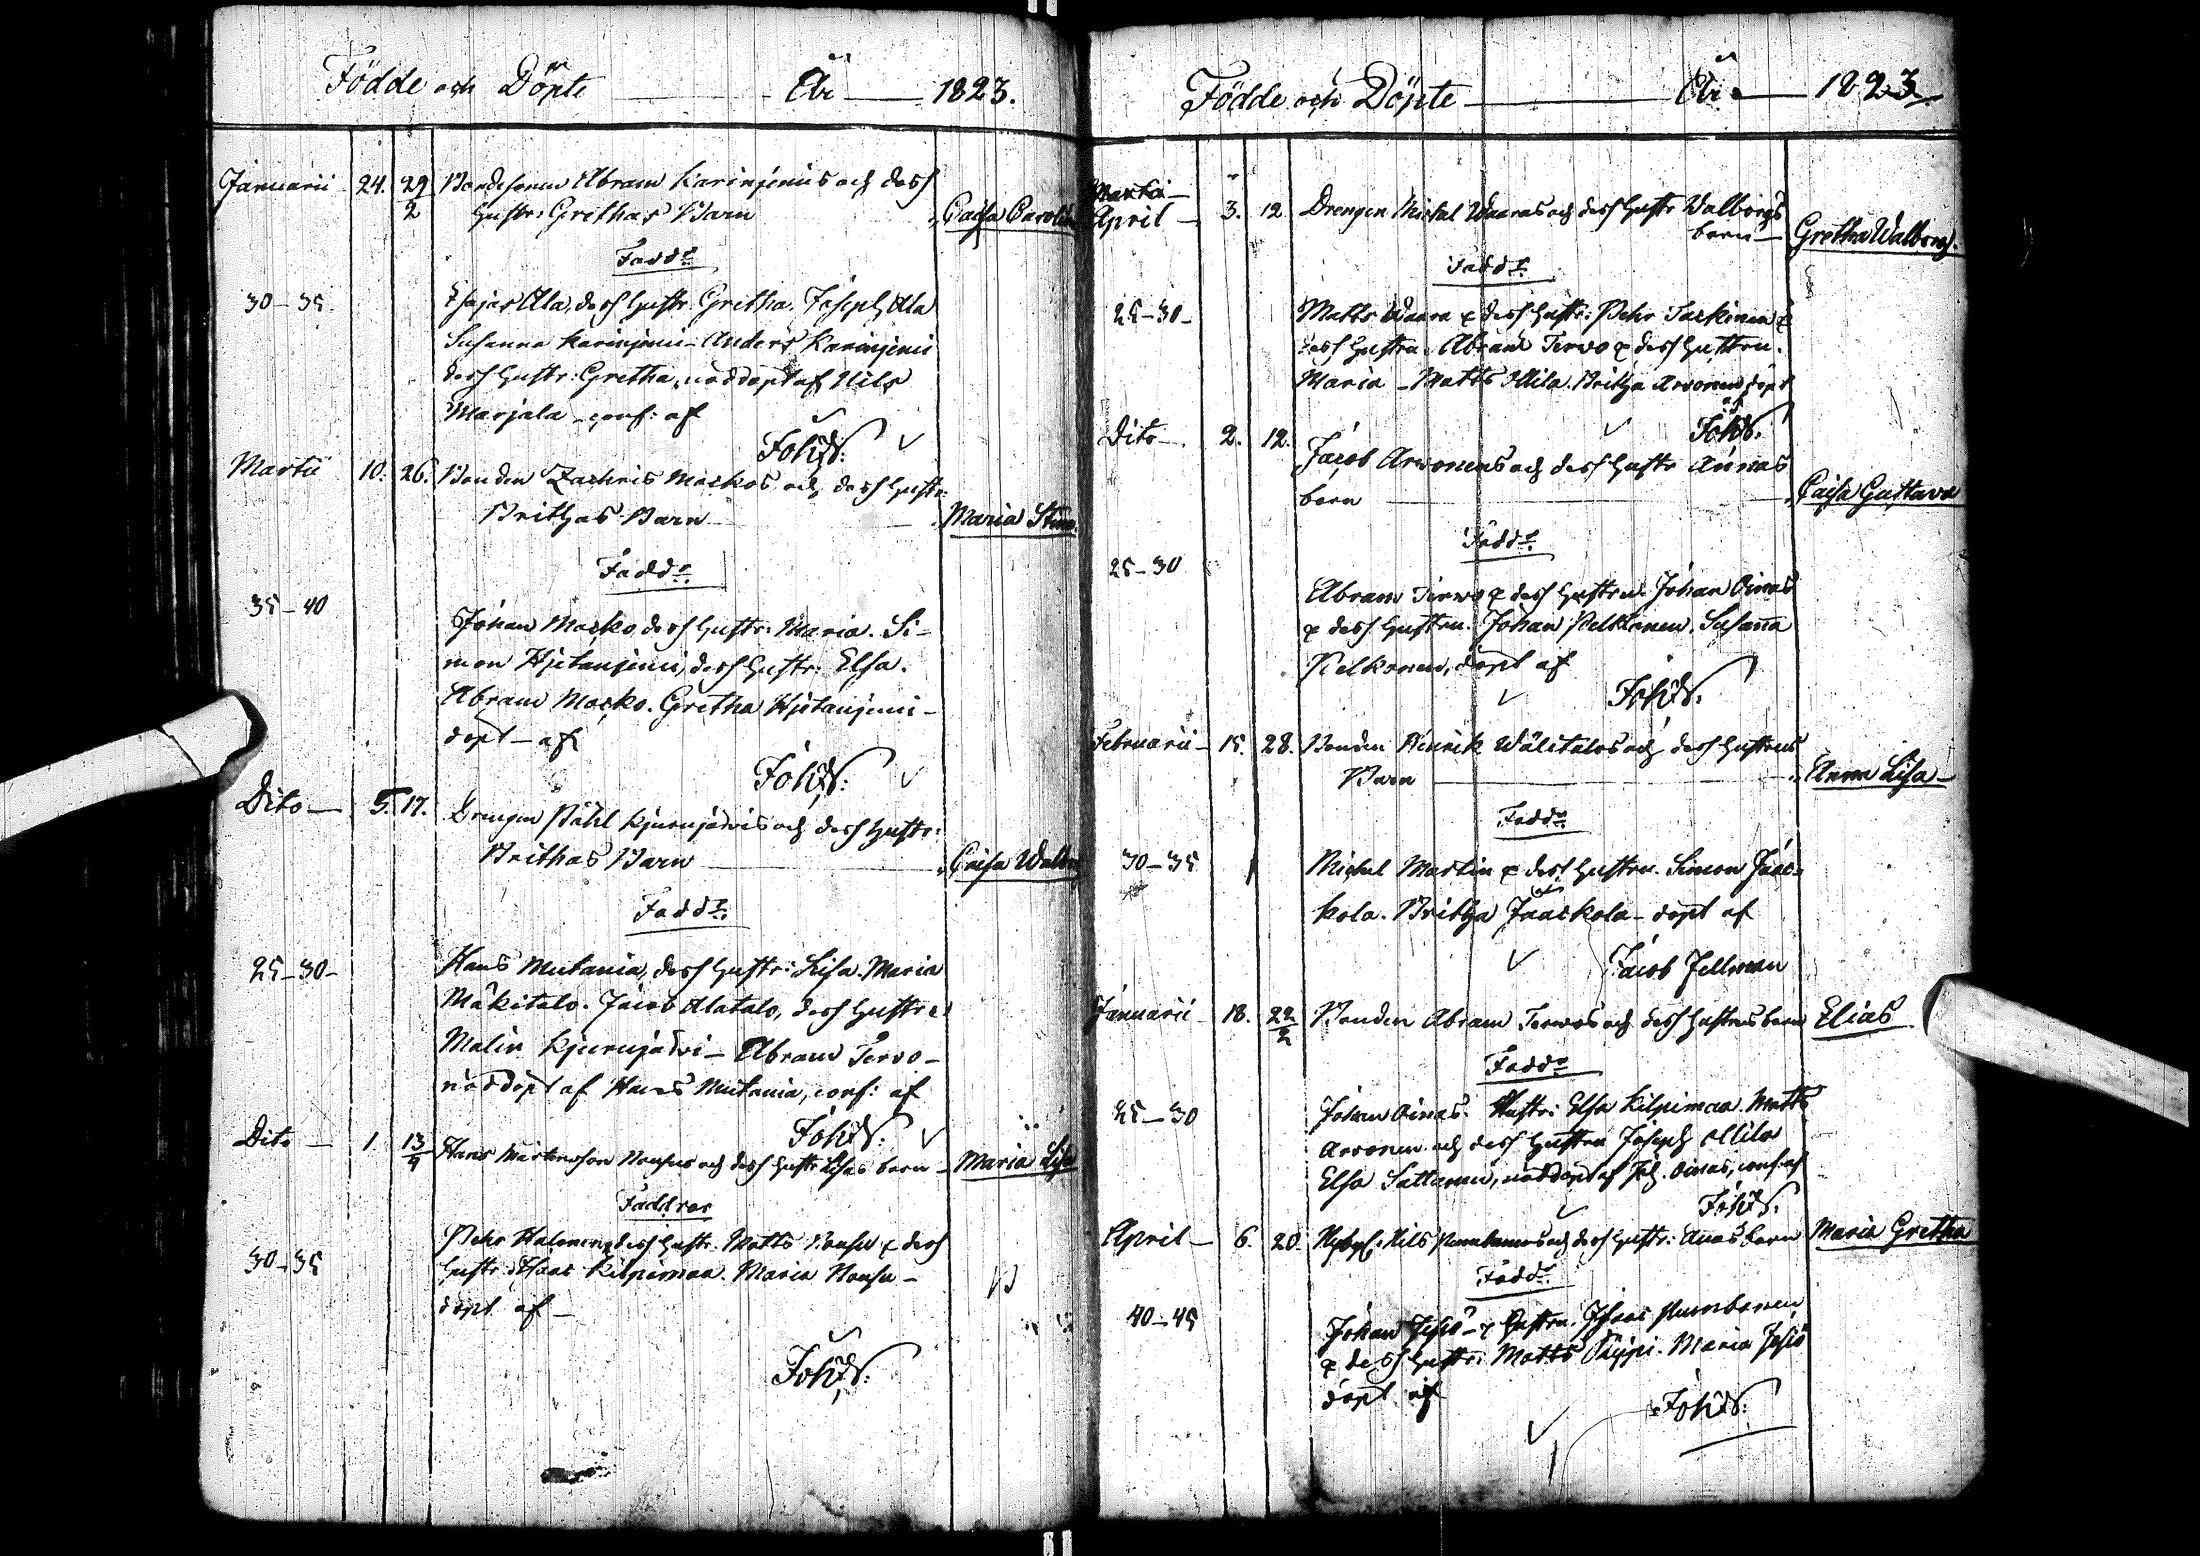 Födde och Döpte År 1823.
Januarii 24. 29/2 Bondesonen Abram Karinjemis och dess
hustr: Grethas Barn Caisa Carolin
Fadd:r
30-35 Esajas Ala, dess hustr. Gretha. Joseph Ala
Susanna Karinjemi - Anders Karinjemi
dess hustr: Gretha, nöddöpt af Nils
Marjala - conf: af
Martii 10. 26. Bonden Zachris Markos och dess hustr:
Brithas Barn Maria Stina
Fadd:r
35-40 Johan Marko dess hustr: Maria. Si-
mon Hjetanjemi, dess hustr: Elsa.
Abram Marko. Gretha Hjetanjemi -
döpt - af
Dito 5. 17. Drengen Påhl Kjerujärvis och dess hustr:
Brithas Barn Caisa Walb
Fadd:r
25-30- Hans Mutania, dess hustr: Lisa. Maria
Mäkitalo. Jacob Alatalo, dess hustr:
Malin Kjerujärvi - Abram Tervo -
nöddöpt af Hans Mutania, conf: af
Dito 1 13/4 Hans Mårtensson och dess hustr Lisas barn - Maria Lisa
Faddrar
30-35 Pehr Halonen, dess hustr. Matts & dess
hustr: Isaac Kilpimaa. Maria -
döpt af -
Födde och Döpte År 1823
Martii
April 3. 12 Drengen Michel Waaras och dess hustr Walborgs
barn Gretha Walborg.
Fadd:r
25-30- Matts Waara & dess hustr: Pehr Tarkinen &
dess hustru. Abram Tervo & dess hustru.
Maria - Matts Ollila. Britha Arvonen, döpt
af
Dito 2. 12. Jacob Arvonens och dess hustr Annas
barn Caisa Gustava
Fadd:r
25-30 Abram Tervo & dess hustru. Johan Oinas
& dess hustru. Johan Pelkonen. Susanna
Pelkonen, döpt af
Februarii 15. 28. Bonden Henrik Wälitalos och dess hustrus
Barn Anna Lisa
Fadd:r
30-35 Michel Martin & dess hustru. Simon Jaas-
kola. Britha Jaaskola - döpt af
Jacob Fellman
Januarii 18. 22/2 Bonden Abram Terwos och dess hustrus barn Elias
Fadd:r
25-30 Johan Oinas. Hustr: Elsa Kilpimaa. Matts
Arvonen och dess hustru Joseph Ollila
Elsa Sattanen, nöddöpt af Joh. Oinas, conf: af
April 6. 20. Nybygg: Nils och dess hustr: Anas barn Maria Gretha
Fadd:r
40-45 Johan Jesiö - & hustru. Isaac
& dess hustr: Matts Pyppi. Maria Jesiö
döpt af